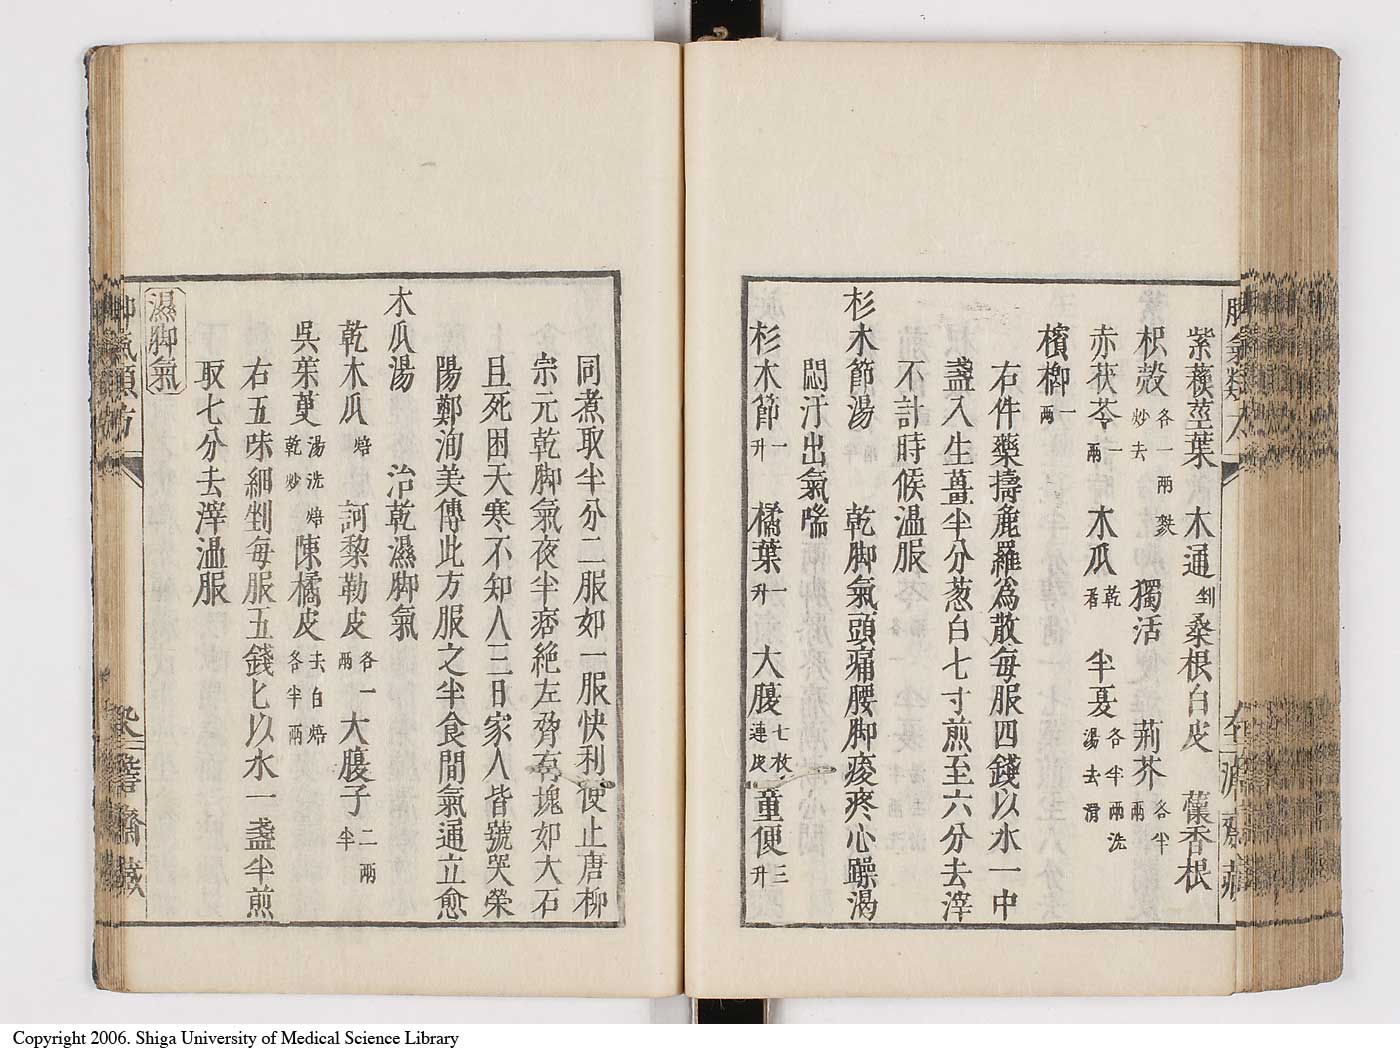 紫蘇莖葉 木通 剉 桑根白皮 蘹香根
枳殼 各一兩麩炒去 獨活 荊芥 各半兩
赤茯苓 一兩 木瓜 乾者 半夏 各半兩洗湯去滑
檳榔 一兩
右件藥擣麁羅為散每服四錢以水一中
盞入生薑半分葱白七寸煎至六分去滓
不計時候温服
杉木節湯 乾脚氣頭痛腰脚痠疼心躁渴
悶汗出氣喘
杉木節 一升 橘葉 一升 大腹 七枚連皮 童便 三升
同煮取半分二服如一服快利便止唐柳
宗元乾脚氣夜半痞絶左脅有塊如大石
且死困天寒不知人三日家人皆號哭榮
陽鄭洵美傳此方服之半食間氣通立愈
木瓜湯 治乾濕脚氣
乾木瓜 焙 訶黎勒皮 各一兩 大腹子 二兩半
吳茱萸 湯洗焙乾炒 陳橘皮 去白焙各半兩
右五味細剉每服五錢匕以水一盞半煎
取七分去滓温服
濕脚氣
Copyright 2006. Shiga University of Medical Science Library